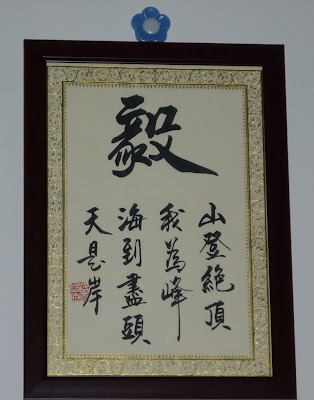 毅
山登絕頂
我為峰
海到盡頭
天是岸